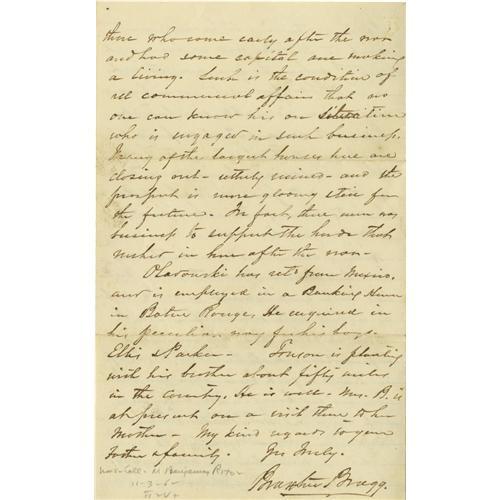 those who came early after the war
and had some capital are making
a living. Such is the condition of
all commercial affairs that no
one can know his own situation
who is engaged in such business.
Many of the largest houses here are
closing out - utterly ruined - and the
prospect is more gloomy still for
the future. In fact, there was no
business to support the horde that
rushed in here after the war -
Oladowski has retd from Mexico,
and is employed in a Banking House
in Baton Rouge, He enquired in
his peculiar way for his boys.
Ellis & Parker - Towson is planting
with his brother about fifty miles
in the country. He is well - Mrs. B. is
at present on a visit there to her
Mother - My kind regards to your
father & family. Yrs Truly.
Braxton Bragg.
11-3-6-